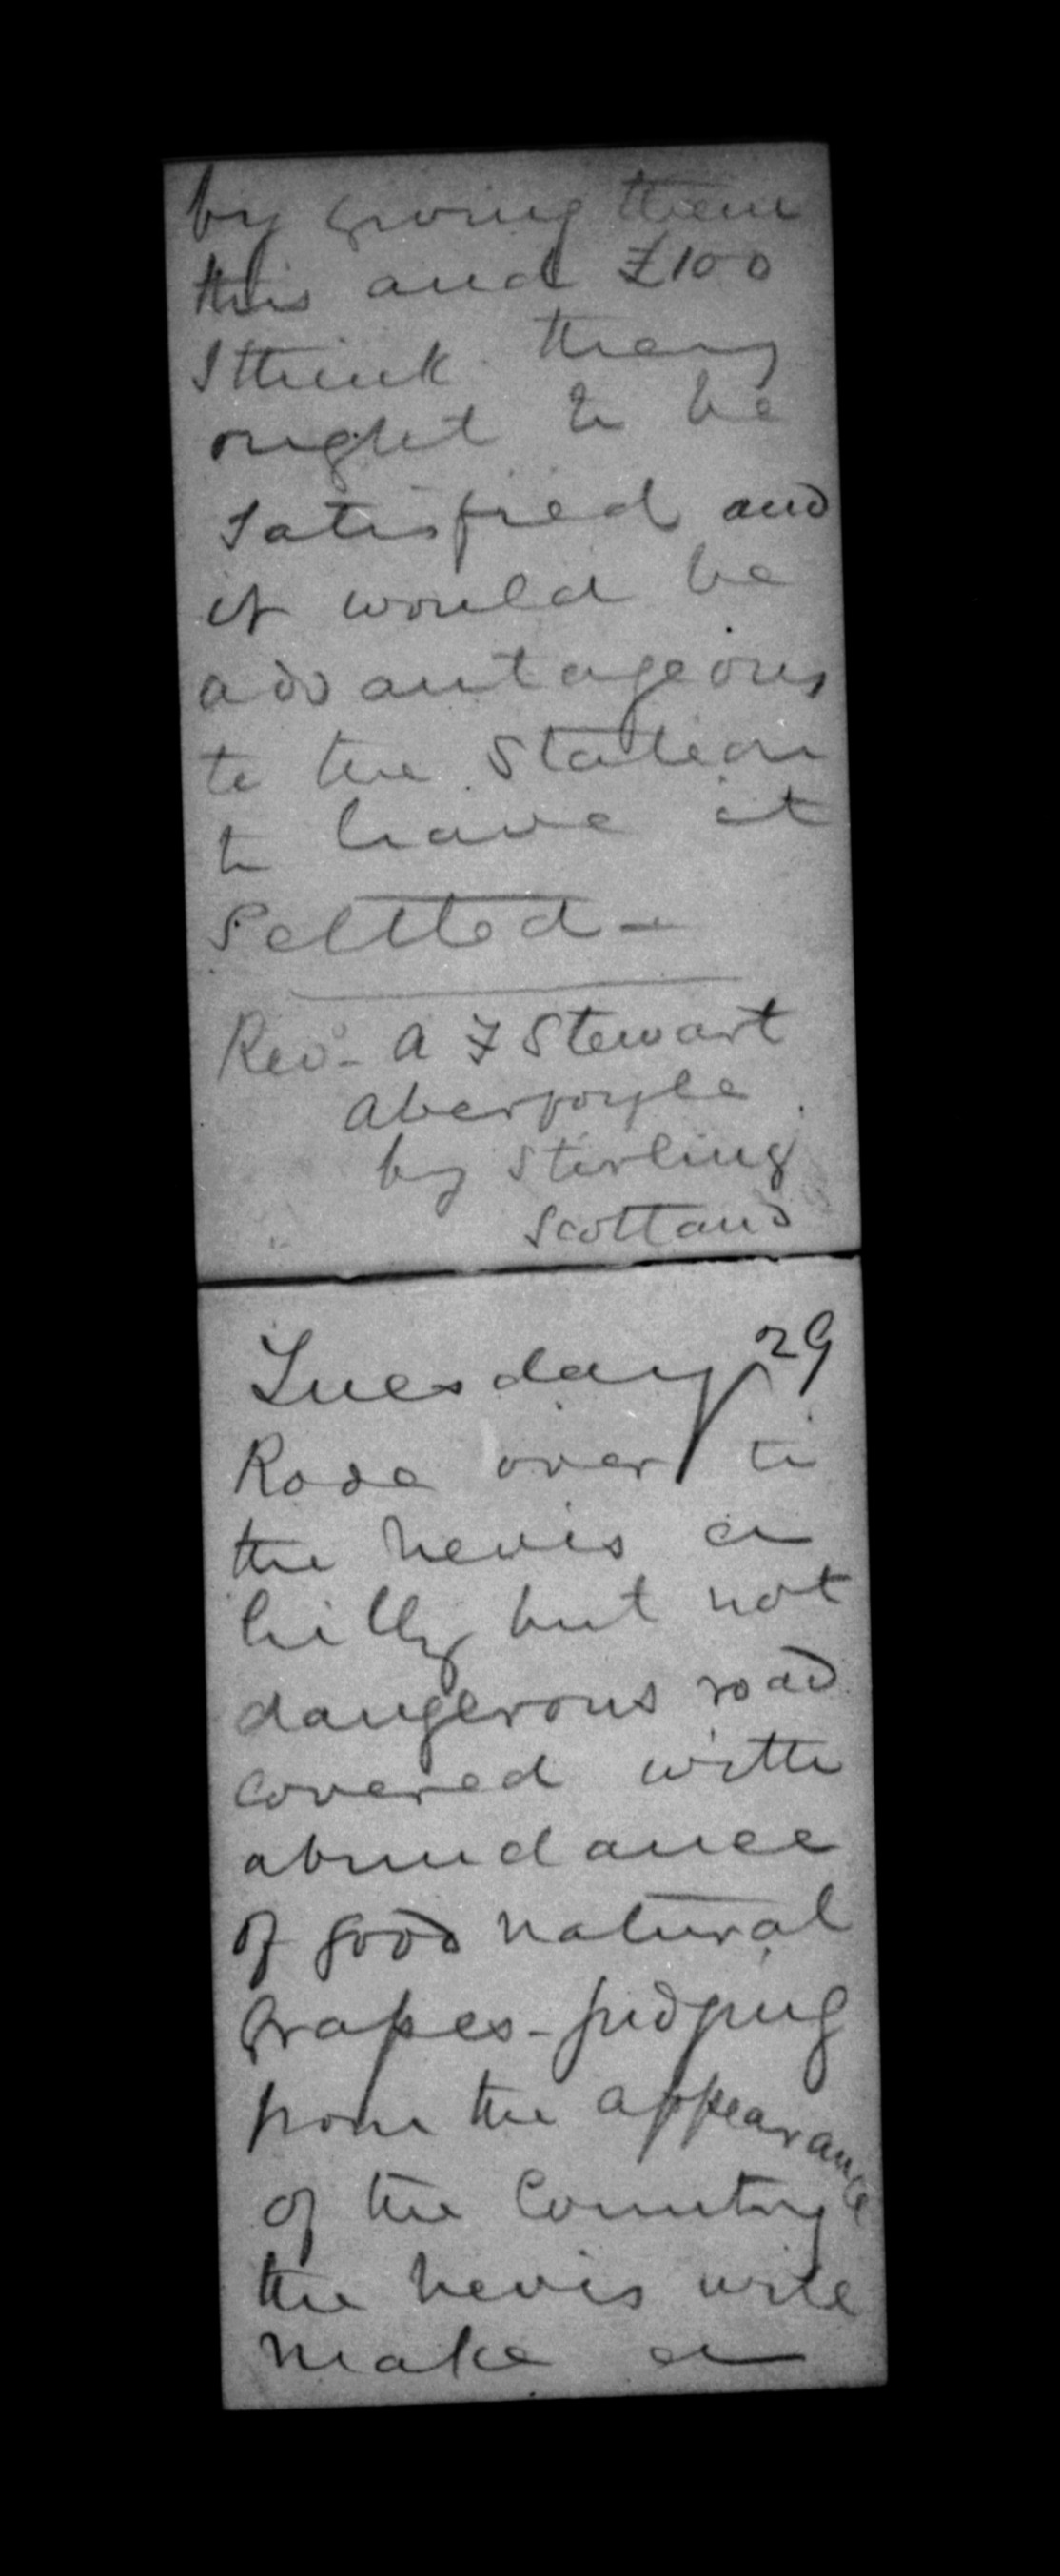 by giving them
this and £100
I think they
ought to be
satisfied and
it would be
advantageous
to the Station
to have it
Settled -
Rev. A F Stewart
Aberfoyle
by Stirling
Scotland
Tuesday 29
Rode over to
the Nevis a
hilly but not
dangerous road
covered with
abundance
of good natural
Grapes - judging
from the appearance
of the Country
the Nevis will
make a